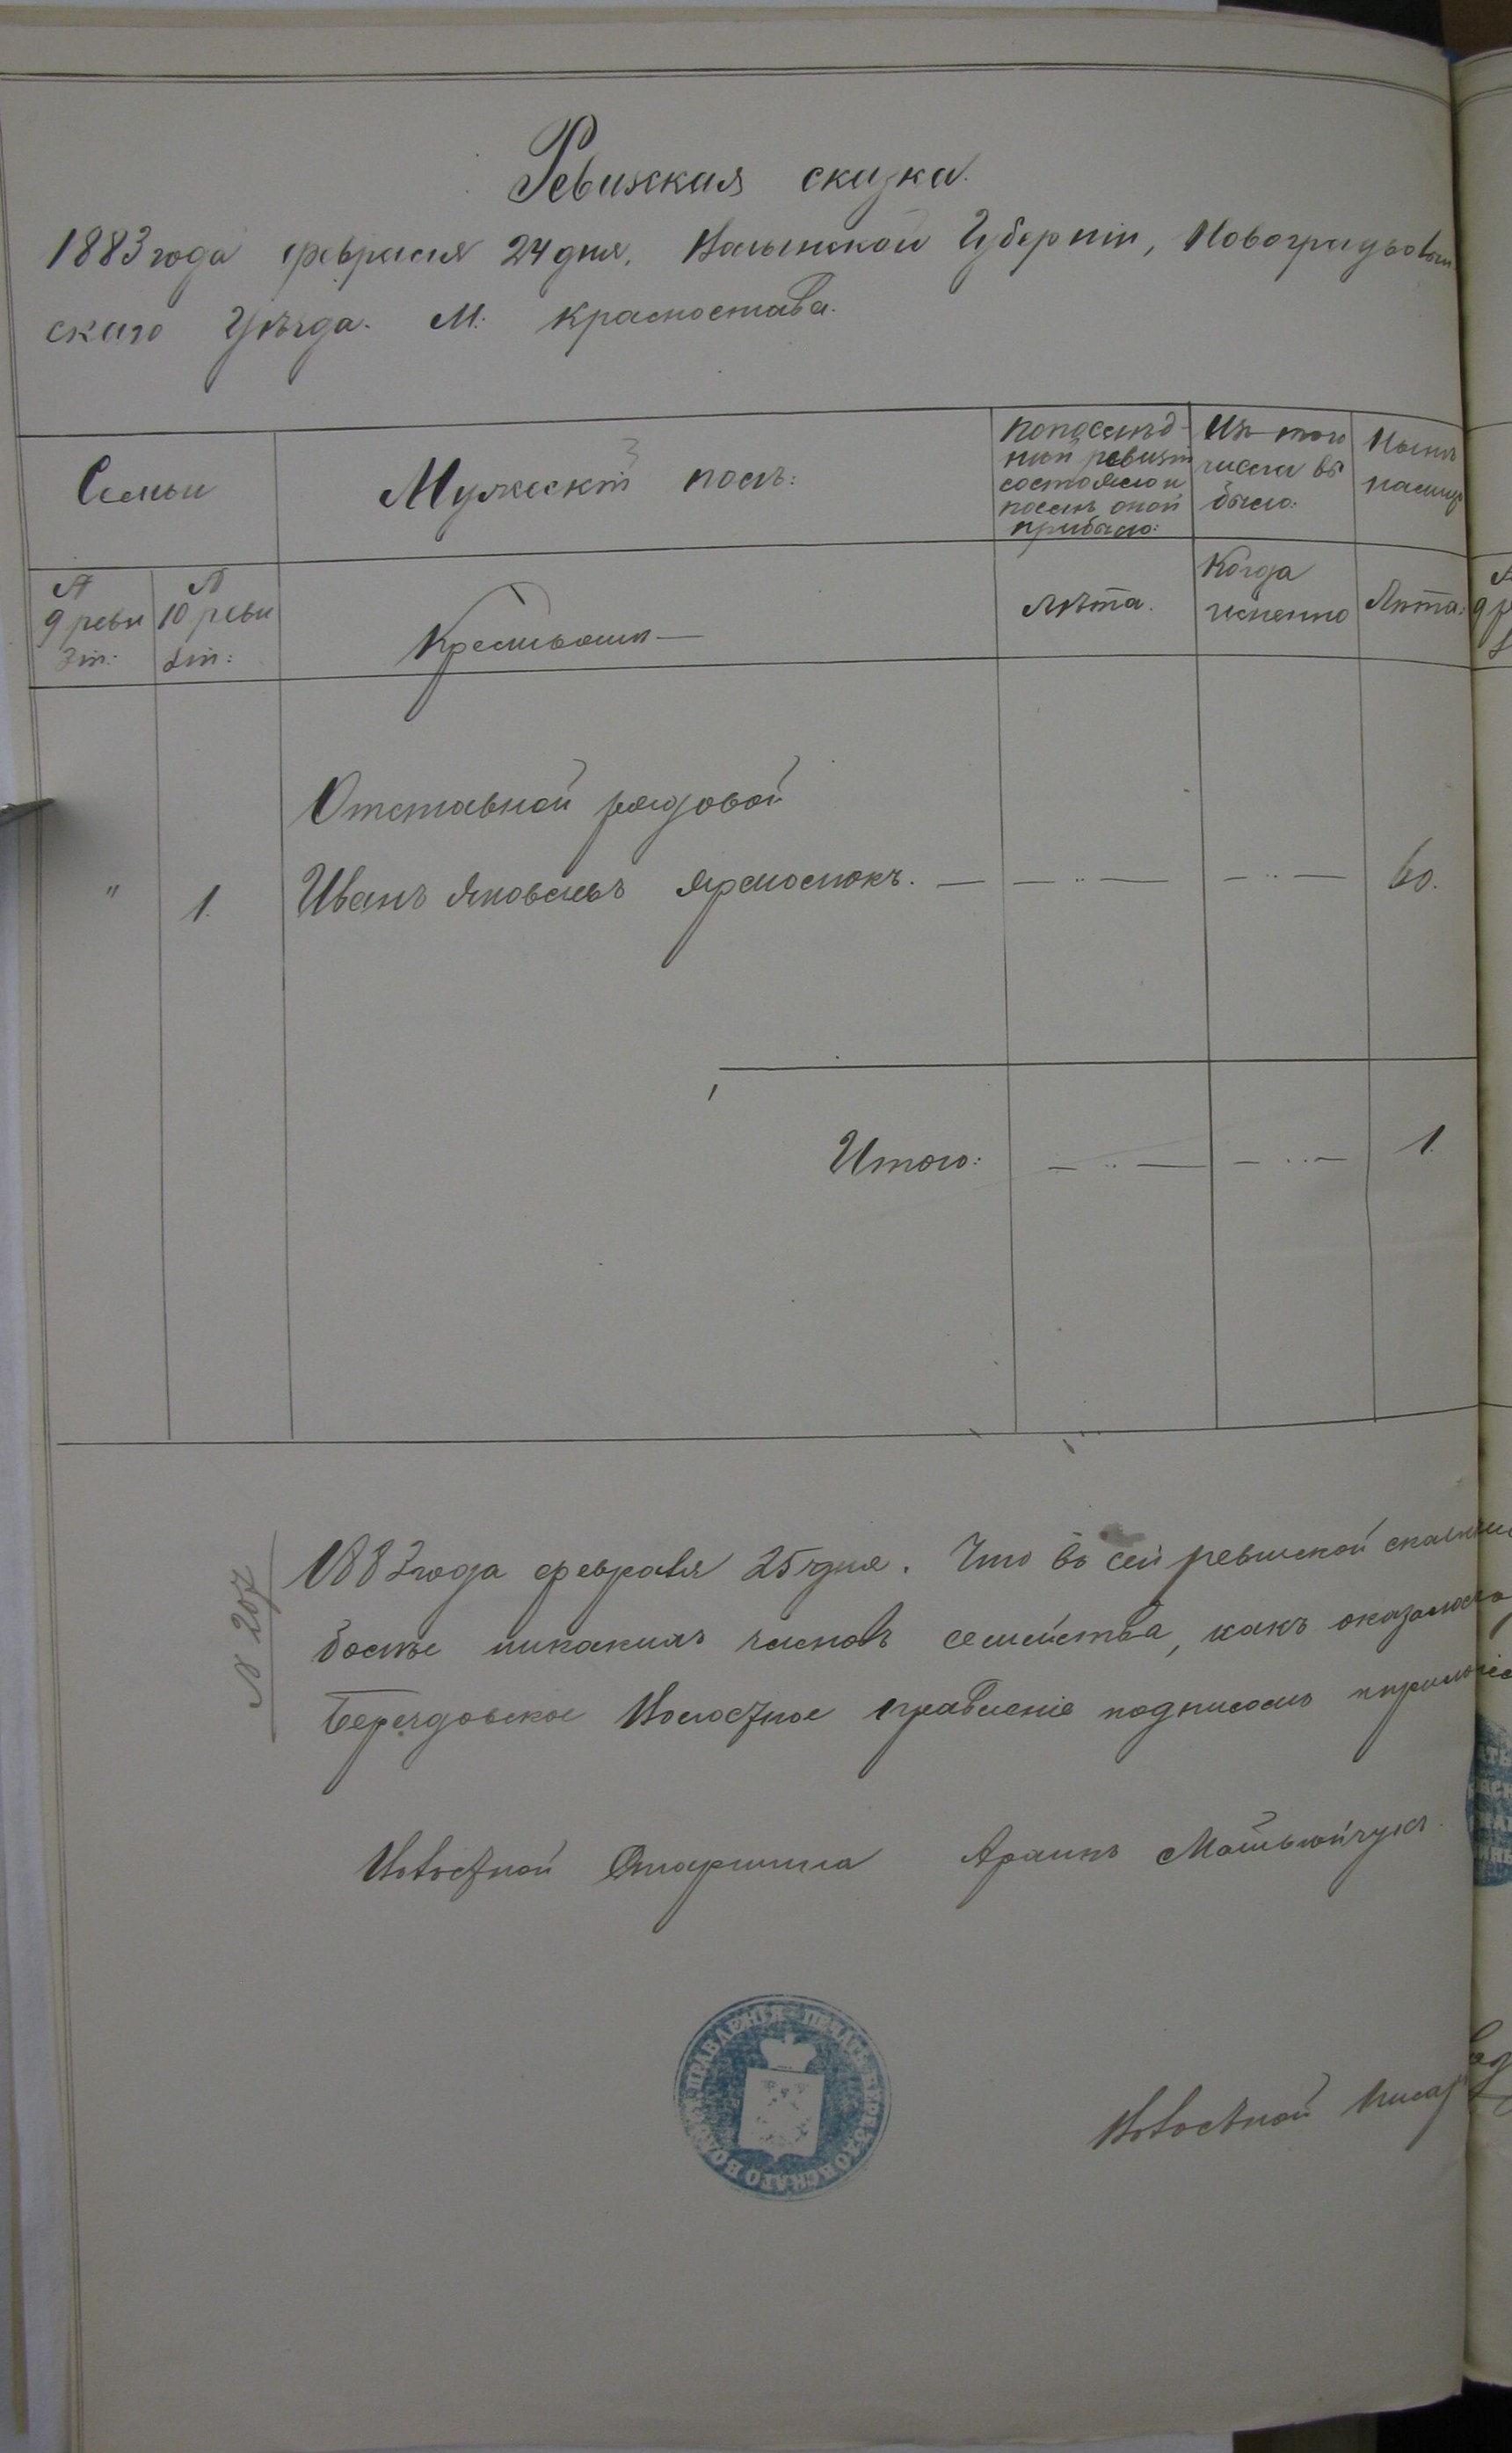 Ревизская сказка.
1883 года февраля 24 дня. Волынской Губерніи, Новоградволын
скаго Уѣзда. М. Красностава.
Семьи
Мужескій полъ:
Попослѣд-
ней ревизіи
состояло и
послѣ оной
прибыло:
Изъ того
числа вы
было:
Нынѣ
налицо
№
9 реви
зіи:
№
10 реви
зіи:
Крестьяни
Лѣта.
Когда
именно
Лѣта:
Отставной рядовой
" 1. Иванъ Яковлевъ Ярмолюкъ. — — .. — — .. — 60.
Итого: — .. — — .. — 1.
№ 207
1883 года февраля 25 дня. Что въ сей ревизской
болѣе никакихъ членовъ семейства, какъ оказалось
Берездовское Волостное правленіе подписомъ
Волостной Старшина Матвѣйчукъ.
ПЕЧАТЬ БЕРЕЗДОВСКАГО ВОЛОСТ. ПРАВЛЕНІЯ
Волостной Писар